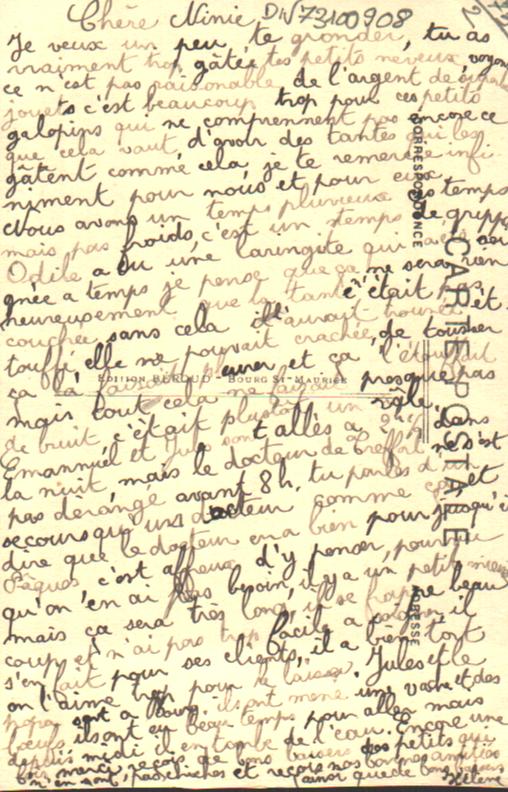 Chère Ninie DIV73100908
2
Je veux un peu te gronder, tu as
vraiment trop gâtée tes petits neveux, voyons
ce n'est pas raisonable de l'argent de
jouets c'est beaucoup trop pour ces petits
galopins qui ne comprennent pas encore ce
que cela vaut, d'avoir des tantes qui les
gâtent comme cela, je te remercie infi
niment pour nous et pour eux.
Nous avons un temps pluvieux des temps
mais pas froids, c'est un temps de grippe
Odile a eu une laringite qui
gnée a temps je pense que ça ne sera rien
heureusement que la tante était
couchée sans cela il l'aurait trouvée
touffé, elle ne pouvait cracher, de tousser
et ça l'étouffait
ça la faisait pleurer, presque pas
mais tout cela ne faisait
de bruit c'était plutôt un râle.
Emmanuel et Jules sont allés a dans
la nuit mais le docteur de Beaufort ne s'est
pas dérangé avant 8h. tu parles d'un
secours qu'un docteur comme ça et
dire que le docteur en a bien pour jusqu'à
Pâques c'est affreux d'y penser, pour peu
qu'on en ai besoin, il y a un petit mieux
mais ça sera très long, il se fatigue beau
coup et n'ai pas trop facile a soigner il
s'en fait pour ses clients, il a bien tort
on l'aime trop pour le laisser. Jules et le
papa sont a Bourg. ils ont mené une vache et des
bœufs ils ont eu beau temps pour aller mais
depuis midi il en tombe de l'eau. Encore une
fois merci reçois de bons baisers des petits qui
n'en sont pas chiches et reçois nos bonnes amitiés
ainsi que de bons baisers
Hélène
CORRESPONDANCE
CARTE POSTALE
ADRESSE
EDITION BERAUD - BOURG ST-MAURICE